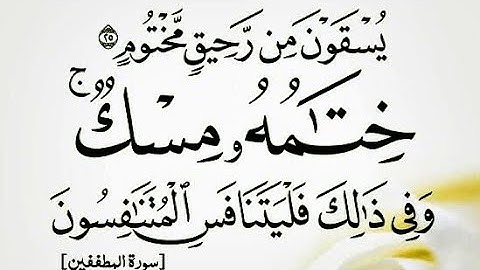 يُسْقَوْنَ مِن رَّحِيقٍ مَّخْتُومٍ ۝٢٥
خِتَٰمُهُۥ مِسْكٌ ۚ
وَفِى ذَٰلِكَ فَلْيَتَنَافَسِ ٱلْمُتَنَٰفِسُونَ
[سورة المطففين]